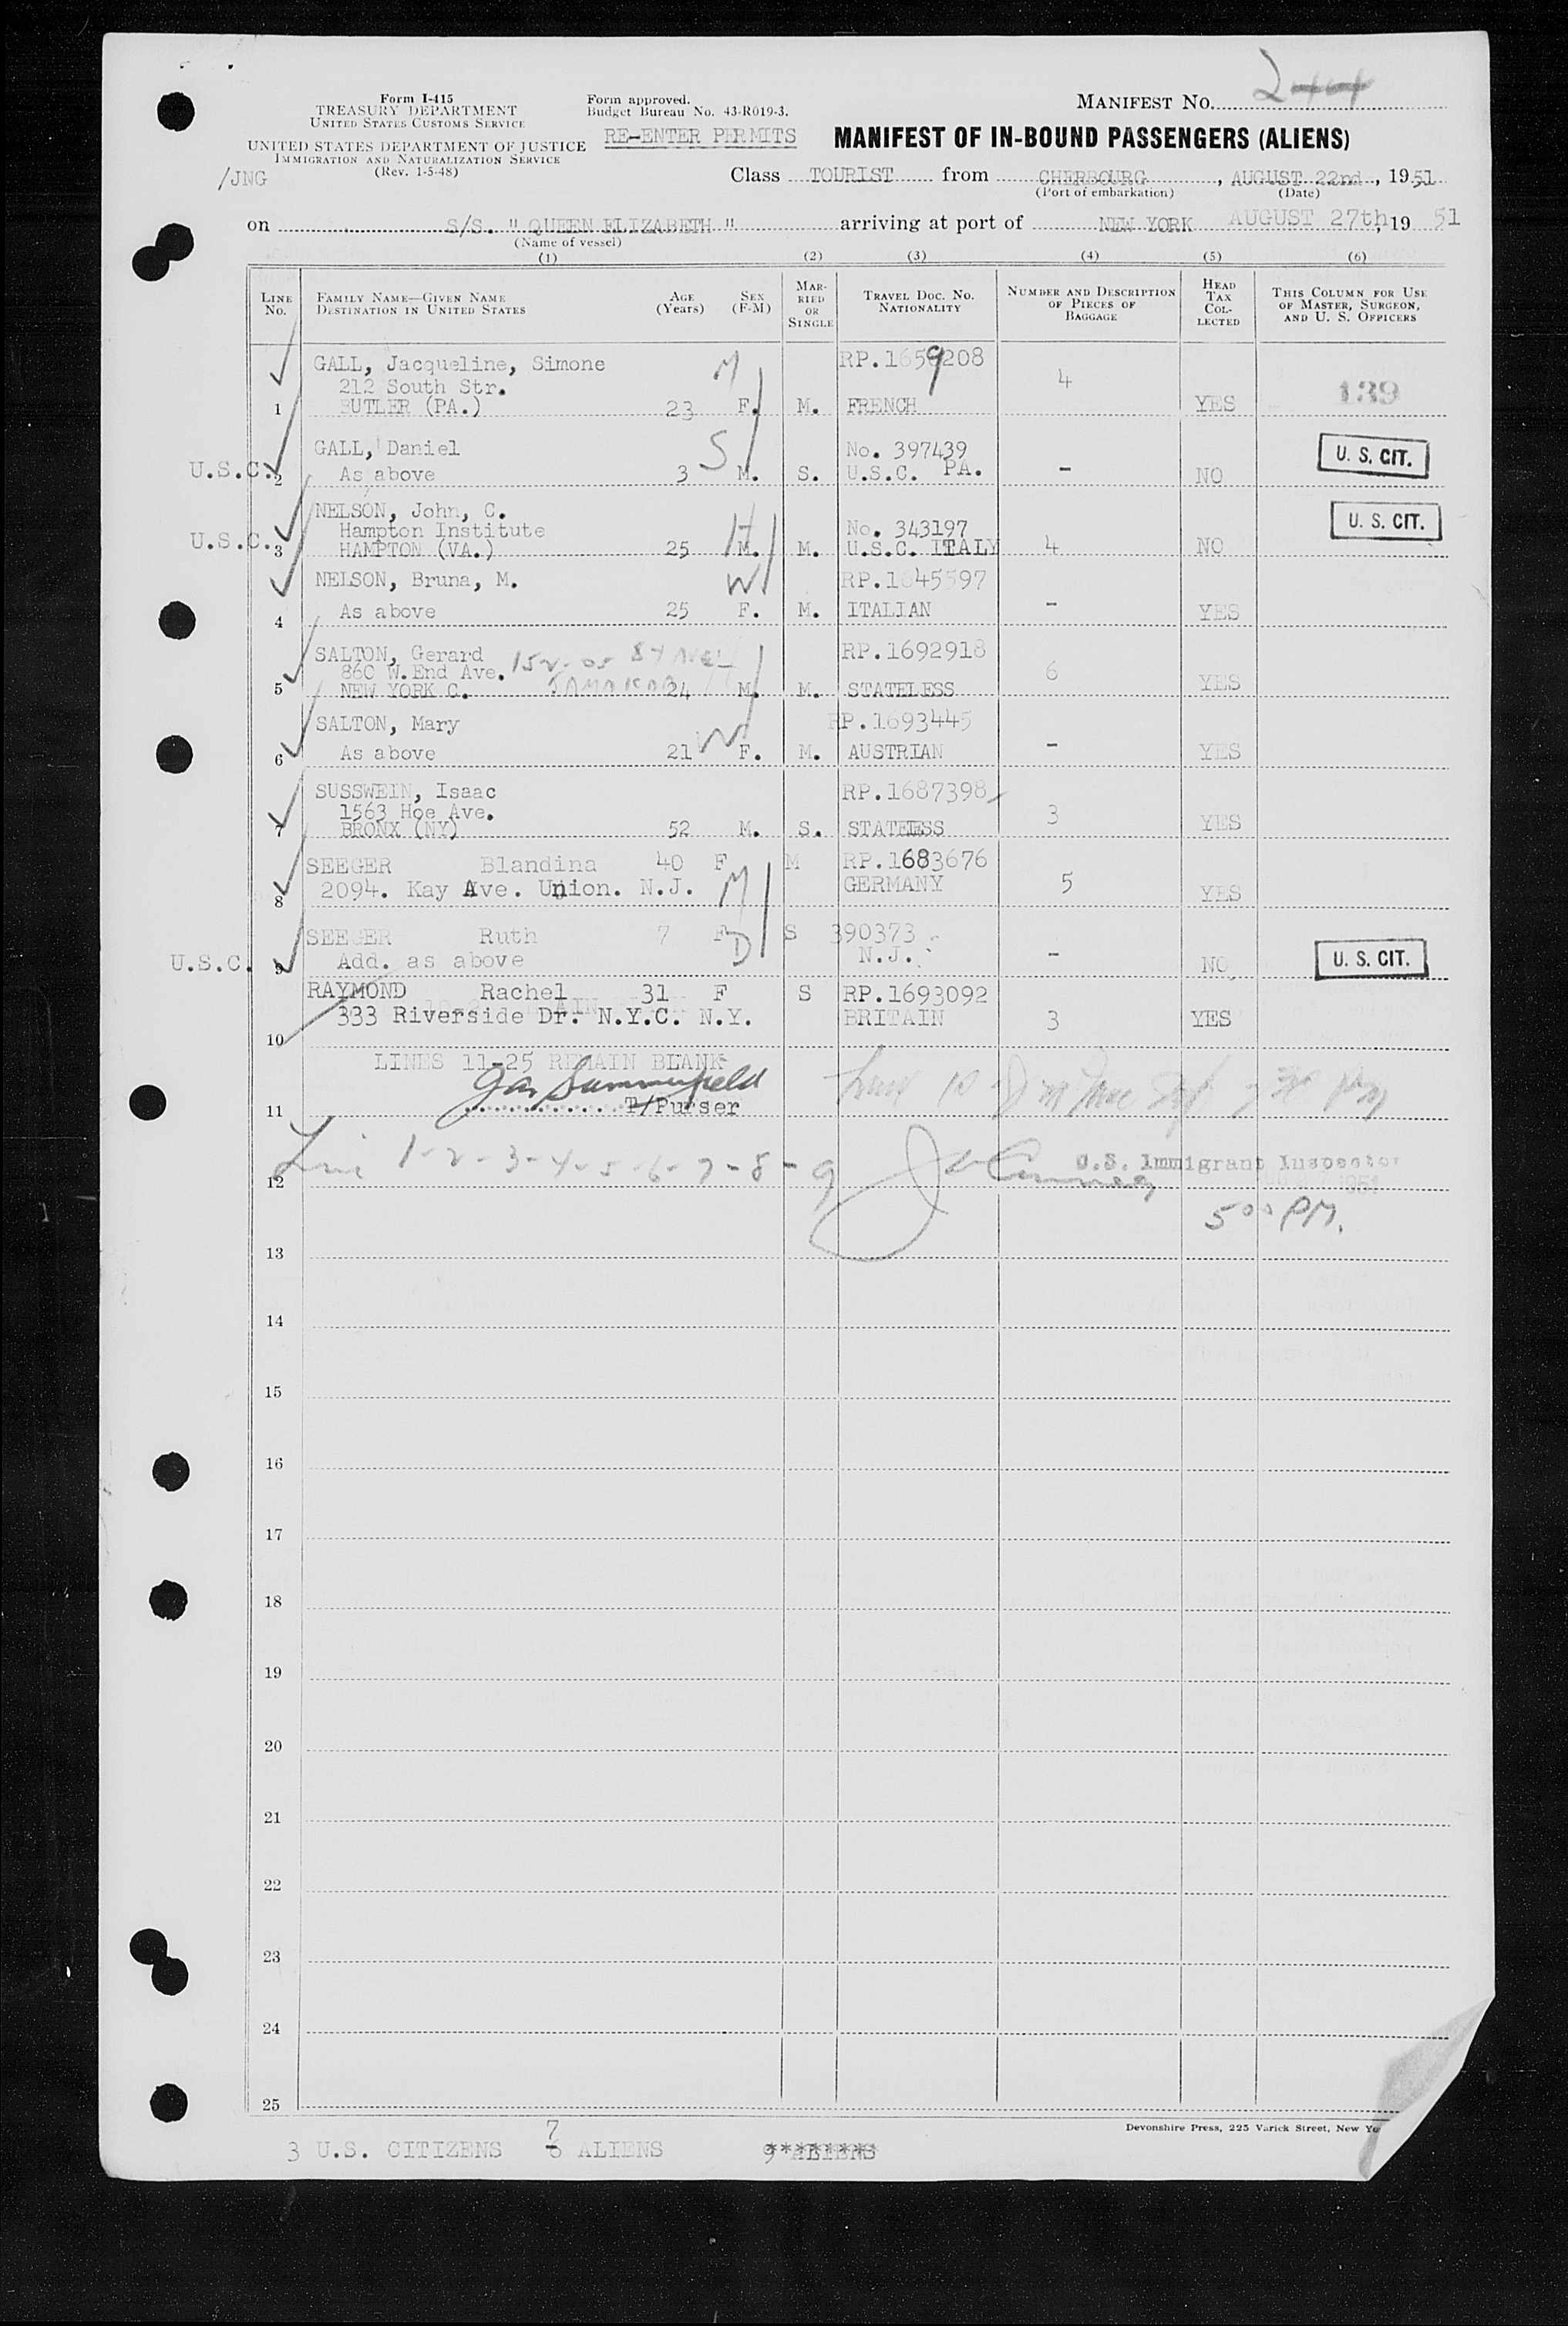 Form I-415
TREASURY DEPARTMENT
UNITED STATES CUSTOMS SERVICE
UNITED STATES DEPARTMENT OF JUSTICE
IMMIGRATION AND NATURALIZATION SERVICE
(Rev. 1-5-48)
/JNG
Form approved.
Budget Bureau No. 43-R019-3.
RE-ENTER PERMITS
MANIFEST NO. 244
MANIFEST OF IN-BOUND PASSENGERS (ALIENS)
Class TOURIST from CHERBOURG, AUGUST 22nd, 1951
(Port of embarkation) (Date)
on S/S. " QUEEN ELIZABETH " arriving at port of NEW YORK AUGUST 27th, 19 51
(Name of vessel)
(1) (2) (3) (4) (5) (6)
LINE NO. FAMILY NAME—GIVEN NAME DESTINATION IN UNITED STATES AGE (Years) SEX (F-M) MARRIED OR SINGLE TRAVEL DOC. NO. NATIONALITY NUMBER AND DESCRIPTION OF PIECES OF BAGGAGE HEAD TAX COLLECTED THIS COLUMN FOR USE OF MASTER, SURGEON, AND U. S. OFFICERS
GALL, Jacqueline, Simone M RP.1659208
212 South Str. 4
1 BUTLER (PA.) 23 F. M. FRENCH YES 139
GALL, Daniel S No. 397439 U. S. CIT.
U.S.C. 2 As above 3 M. S. U.S.C. PA. - NO
NELSON, John, C. U. S. CIT.
Hampton Institute H No. 343197
U.S.C. 3 HAMPTON (VA.) 25 M. M. U.S.C. ITALY 4 NO
NELSON, Bruna, M. W RP.1845597
4 As above 25 F. M. ITALIAN - YES
SALTON, Gerard 152-05 84 Ave RP.1692918
860 W.End Ave. JAMAICA 6
5 NEW YORK C. 24 M. M. STATELESS YES
SALTON, Mary W RP.1693445
6 As above 21 F. M. AUSTRIAN - YES
SUSSWEIN, Isaac RP.1687398
1563 Hoe Ave. 3
7 BRONX (NY) 52 M. S. STATELESS YES
SEEGER Blandina 40 F M RP.1683676
8 2094. Kay Ave. Union. N.J. M GERMANY 5 YES
SEEGER Ruth 7 F D S 390373
U.S.C. 9 Add. as above N.J. - NO U. S. CIT.
RAYMOND Rachel 31 F S RP.1693092
333 Riverside Dr. N.Y.C. N.Y. BRITAIN 3 YES
10
LINES 11-25 REMAIN BLANK
11 T/Purser
12 Line 1-2-3-4-5-6-7-8-9 U.S. Immigrant Inspector
5 00 PM.
13
14
15
16
17
18
19
20
21
22
23
24
25
Devonshire Press, 225 Varick Street, New Yo
3 U.S. CITIZENS 7 6 ALIENS 9 ALIENS